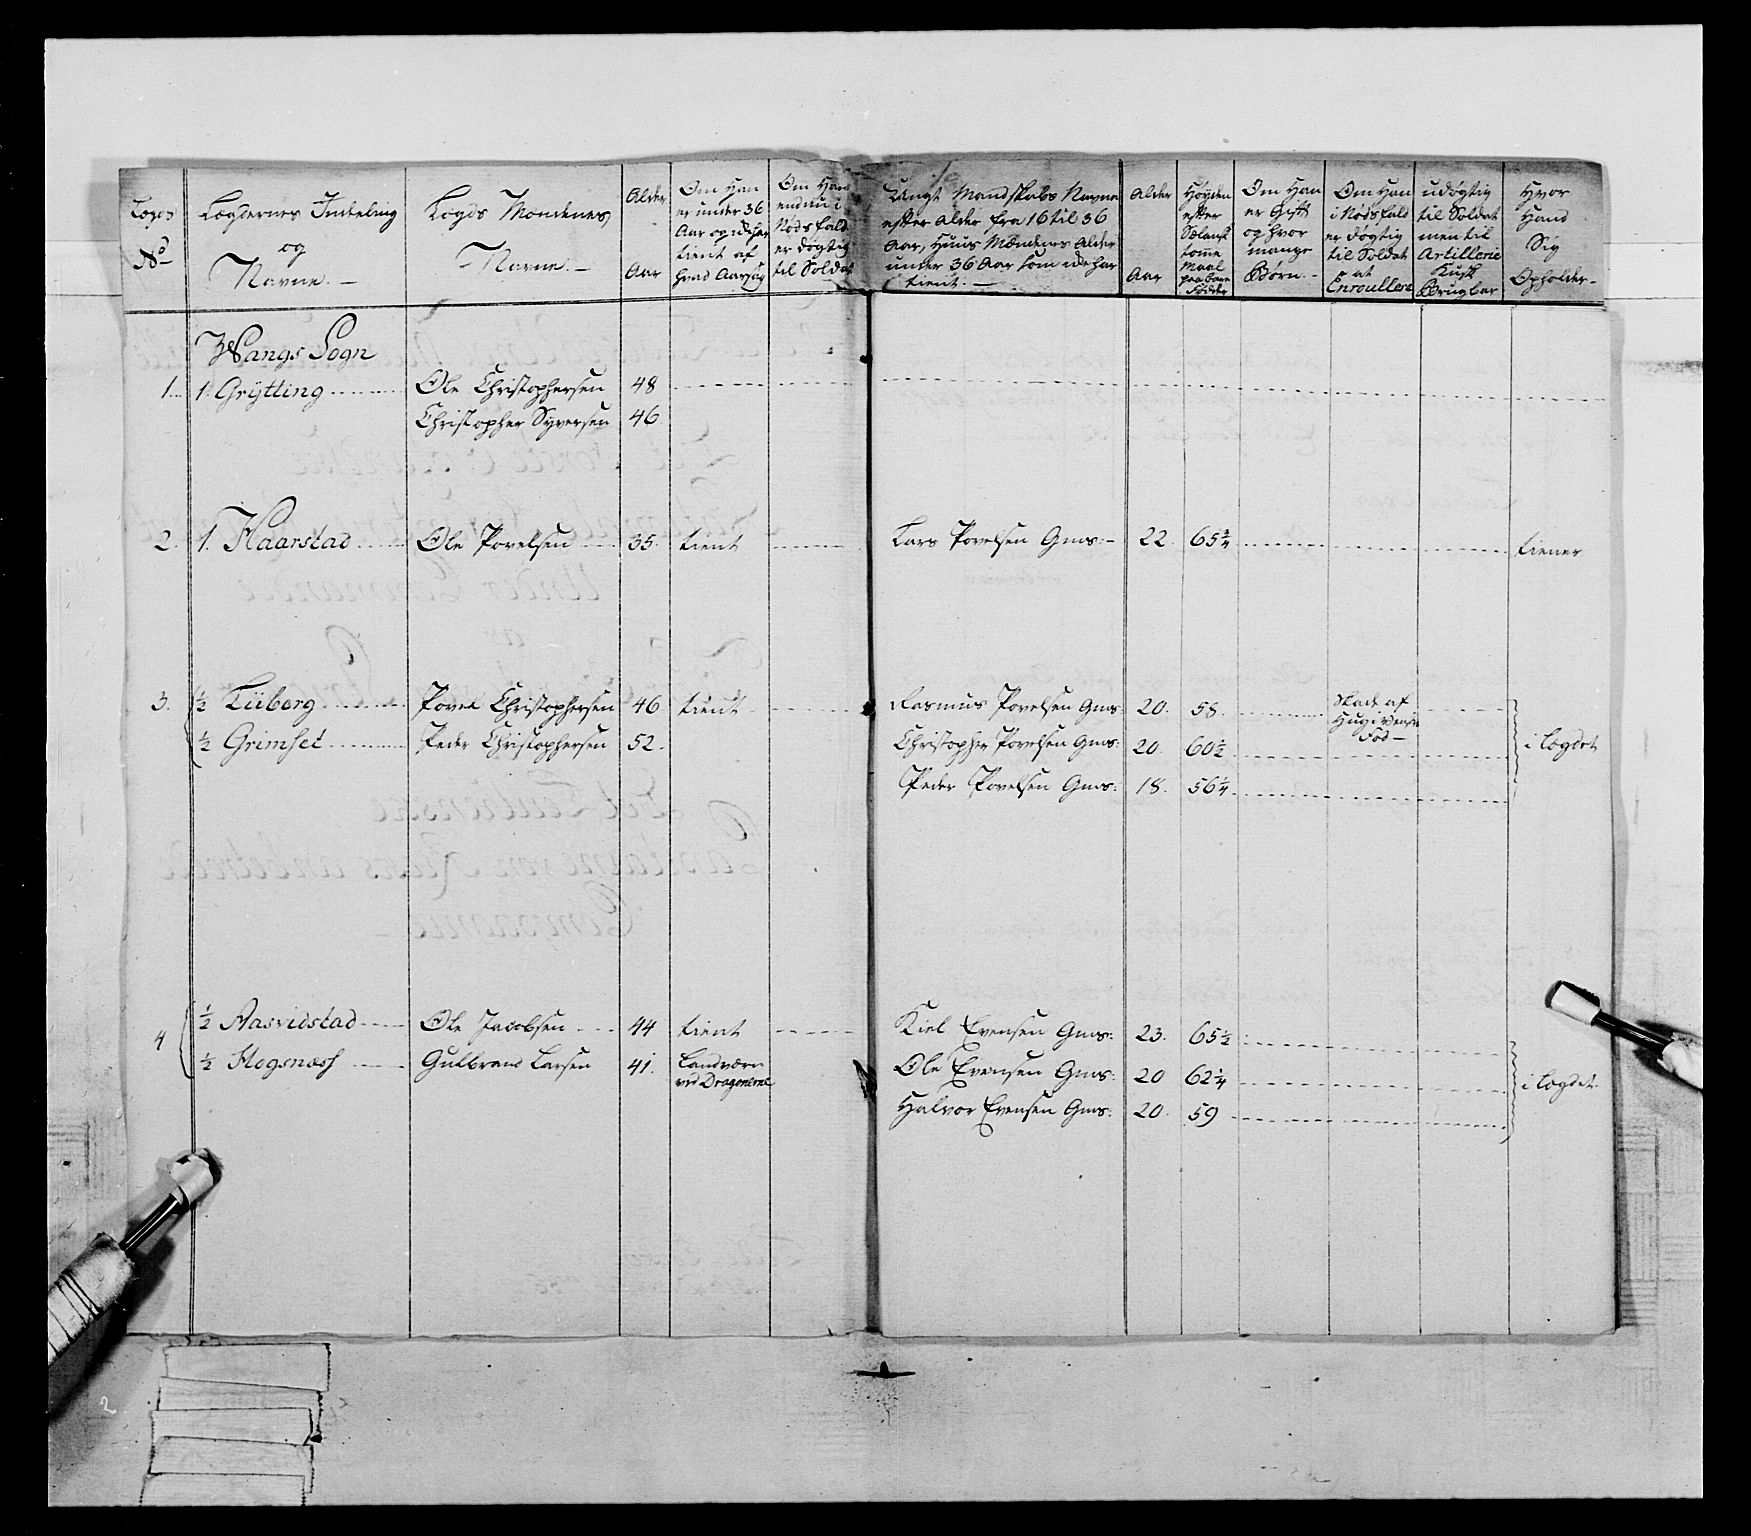 Lægds
No
Lægdernes Indeling
og
Navne. —
Lægds Mændenes,
Navne. —
Alder
Aar
Om Han
er under 36
Aar og icke har
tient af
hvad Aarsag
Om Han
endnu i
Nøds fald
er døgtig
til Soldat
Ungt Mandskabs Navne
efter Alder fra 16 til 36
Aar, Huus Mændenes Alder
under 36 Aar som icke har
tient. —
Alder
Aar
Høyden
efter
Sælansk
tome
Maal
paa bare
Fødder
Om Han
er Gift
og hvor
mange
Børn. —
Om Han
i Nøds fald
er døgtig
til Soldat
at
Enroullere
udøgtig
til Soldat
men til
Artillerie
Kusk
Brugbar
Hvor
Hand
Sig
Opholder. —
Wangs Sogn
1. 1. Grÿtting Ole Christophersen 48
Christopher Syversen 46
2. 1. Haarstad Ole Povelsen 35. tient Lars Povelsen Gms: 22. 65 3/4 tiener
3. 1/2 Liiberg Povel Christophersen 46 tient Rasmus Povelsen Gms: 20. 58. Skade af
Hug i venstre
Fod —
1/2 Grimset Peder Christophersen 52. Christopher Povelsen Gms: 20. 60 1/2 i Lægdet
Peder Povelsen Gms: 18. 56 1/4
4 1/2 Aasvidstad Ole Jacobsen 44 tient Kiel Evensen Gms: 23. 65 1/2
1/2 Hogsnæss Gulbrand Larsen 41. Landværn
ved Dragonerne
Ole Evensen Gms: 20 62 1/4 i Lægdet.
Halvor Evensen Gms: 20. 59
2